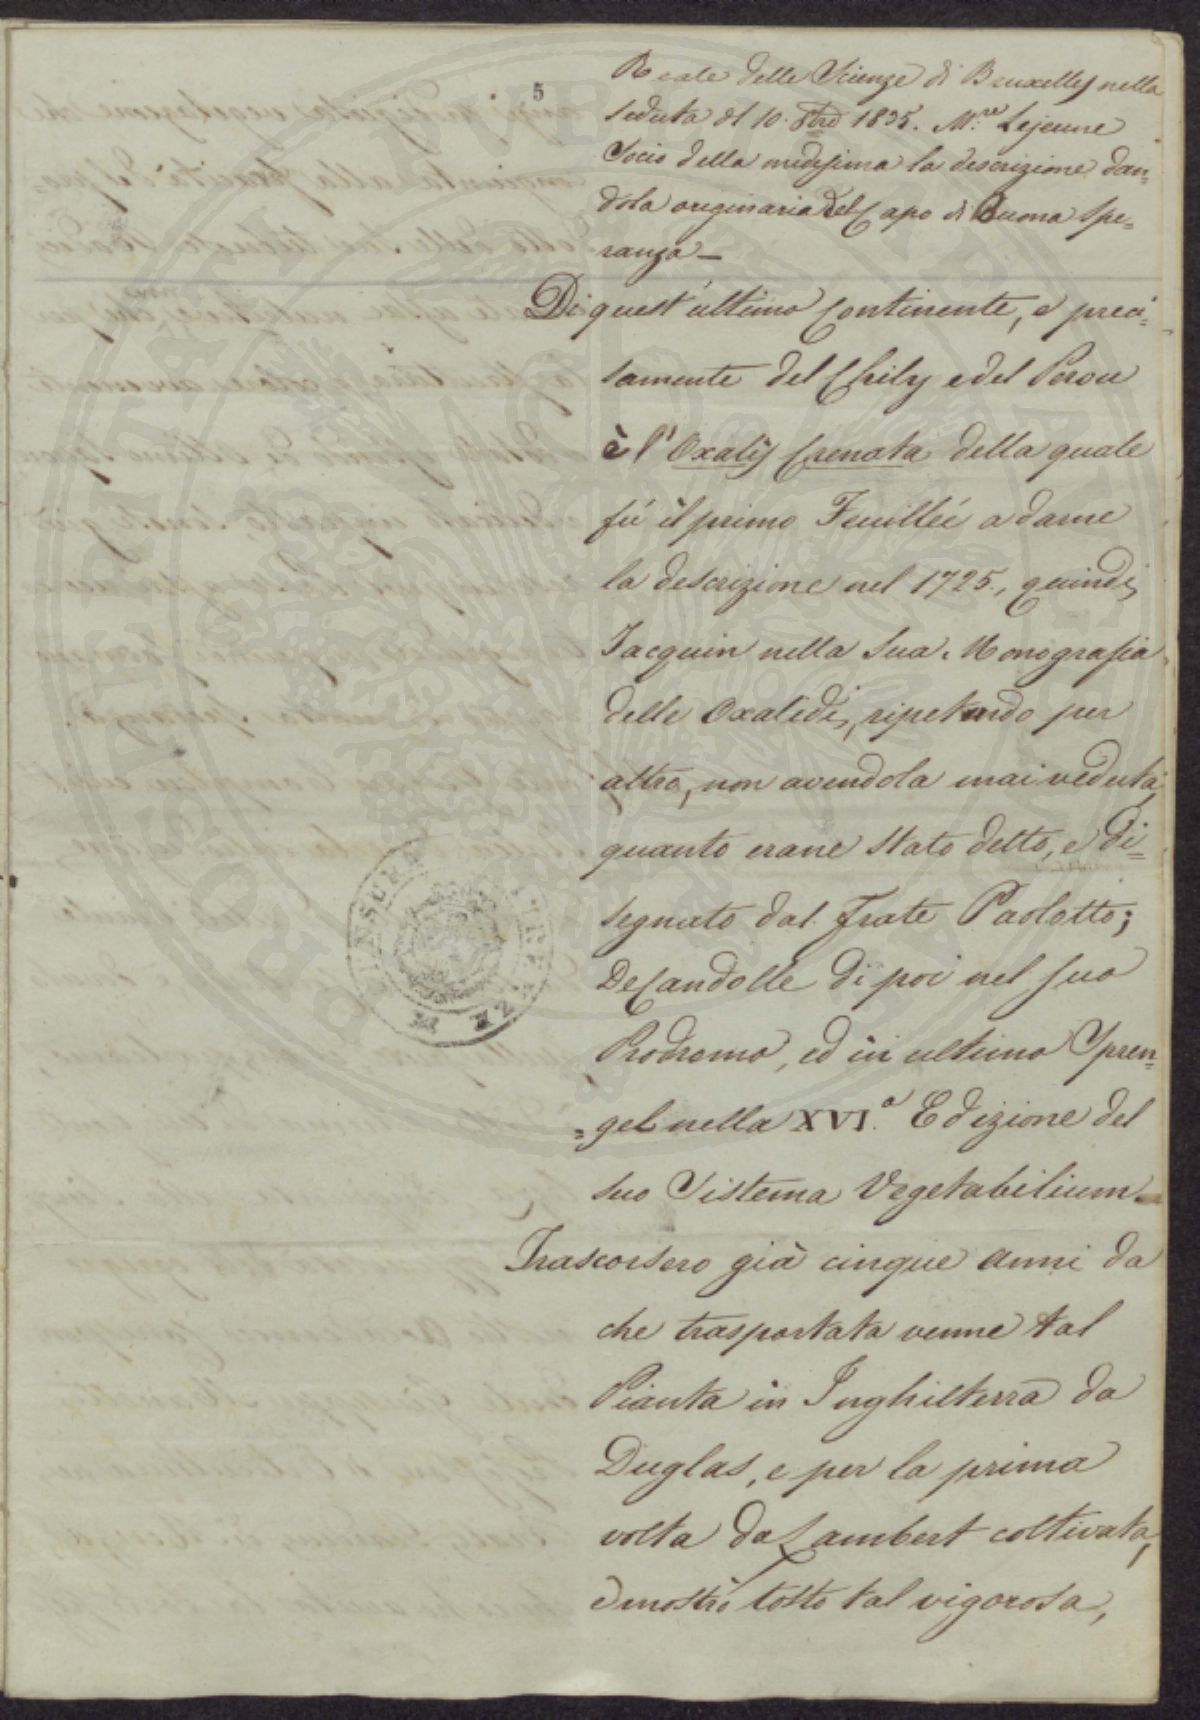 5
Reale delle Scienze di Bruxelles nella
seduta dl 10. 8bre 1835. M.re Lejeune
Socio della medesima la descrizione dan=
dola originaria del Capo di Buona Spe=
ranza —
Di quest'ultimo Continente, e preci=
samente del Chily e del Perou
è l'Oxalis Crenata della quale
fú il primo Feuilleé a darne
la descrizione nel 1725., quindi
Jacquin nella sua Monografia
delle Oxalidi, ripetendo per
altro, non avendola mai veduta,
quanto erane stato detto, e di=
segnato dal Frate Paolotto;
DeCandolle di poi nel suo
Prodromo, ed in ultimo Spren=
=gel nella XVI.a Edizione del
suo Sistema Vegetabilium
Trascorsero già cinque anni da
che trasportata venne tal
Pianta in Inghilterra da
Duglas, e per la prima
volta da Lambert coltivata,
dimostrò tosto tal vigorosa,